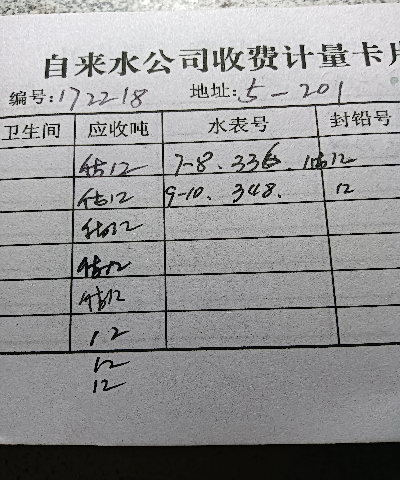 自来水公司收费计量卡片
编号:172218 地址:5-201
卫生间 应收吨 水表号 封铅号
估12 7-8. 336. 12
估12 9-10. 348. 12
估12
估12
估12
12
12
12